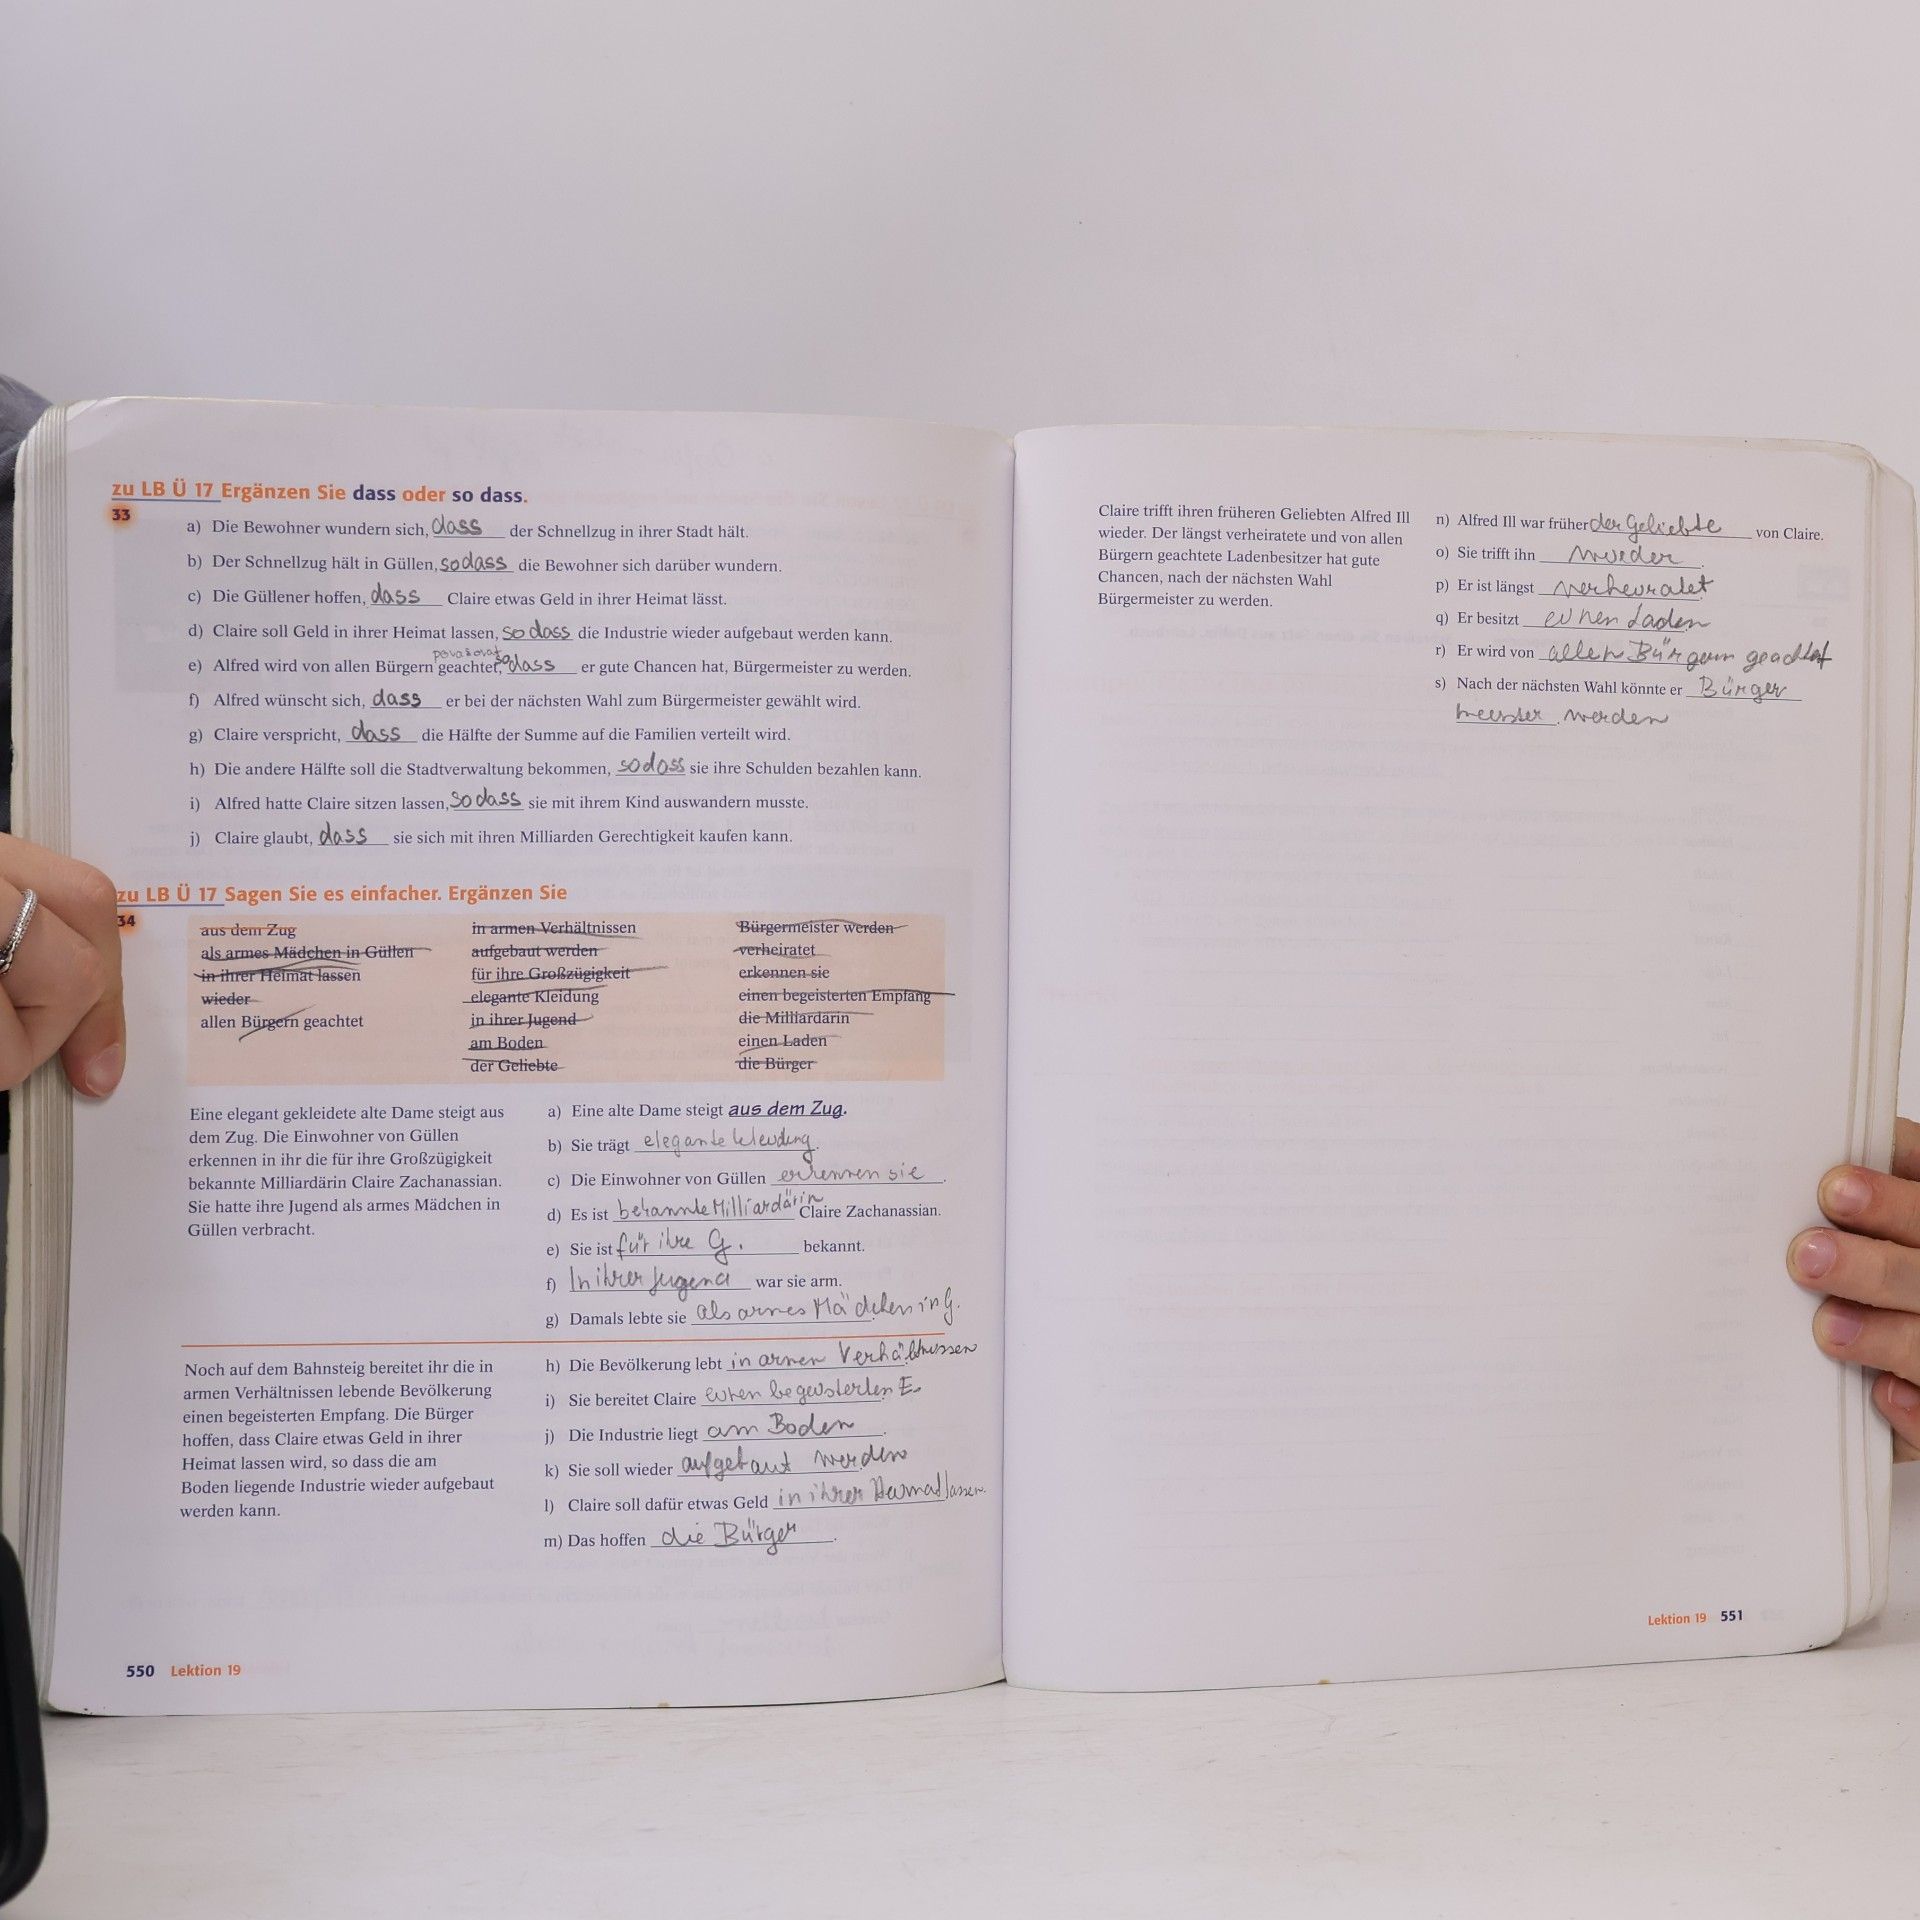 zu LB Ü 17 Ergänzen Sie dass oder so dass.
33
a) Die Bewohner wundern sich, dass der Schnellzug in ihrer Stadt hält.
b) Der Schnellzug hält in Güllen, sodass die Bewohner sich darüber wundern.
c) Die Güllener hoffen, dass Claire etwas Geld in ihrer Heimat lässt.
d) Claire soll Geld in ihrer Heimat lassen, so dass die Industrie wieder aufgebaut werden kann.
považovat
e) Alfred wird von allen Bürgern geachtet, so dass er gute Chancen hat, Bürgermeister zu werden.
f) Alfred wünscht sich, dass er bei der nächsten Wahl zum Bürgermeister gewählt wird.
g) Claire verspricht, dass die Hälfte der Summe auf die Familien verteilt wird.
h) Die andere Hälfte soll die Stadtverwaltung bekommen, sodass sie ihre Schulden bezahlen kann.
i) Alfred hatte Claire sitzen lassen, so dass sie mit ihrem Kind auswandern musste.
j) Claire glaubt, dass sie sich mit ihren Milliarden Gerechtigkeit kaufen kann.
zu LB Ü 17 Sagen Sie es einfacher. Ergänzen Sie
34
aus dem Zug
als armes Mädchen in Güllen
in ihrer Heimat lassen
wieder
allen Bürgern geachtet
in armen Verhältnissen
aufgebaut werden
für ihre Großzügigkeit
elegante Kleidung
in ihrer Jugend
am Boden
der Geliebte
Bürgermeister werden
verheiratet
erkennen sie
einen begeisterten Empfang
die Milliardärin
einen Laden
die Bürger
Eine elegant gekleidete alte Dame steigt aus
dem Zug. Die Einwohner von Güllen
erkennen in ihr die für ihre Großzügigkeit
bekannte Milliardärin Claire Zachanassian.
Sie hatte ihre Jugend als armes Mädchen in
Güllen verbracht.
a) Eine alte Dame steigt aus dem Zug.
b) Sie trägt elegante Kleidung.
c) Die Einwohner von Güllen erkennen sie.
d) Es ist bekannte Milliardärin Claire Zachanassian.
e) Sie ist für ihre G. bekannt.
f) In ihrer Jugend war sie arm.
g) Damals lebte sie als armes Mädchen in G.
Noch auf dem Bahnsteig bereitet ihr die in
armen Verhältnissen lebende Bevölkerung
einen begeisterten Empfang. Die Bürger
hoffen, dass Claire etwas Geld in ihrer
Heimat lassen wird, so dass die am
Boden liegende Industrie wieder aufgebaut
werden kann.
h) Die Bevölkerung lebt in armen Verhältnissen
i) Sie bereitet Claire einen begeisterten E.
j) Die Industrie liegt am Boden.
k) Sie soll wieder aufgebaut werden
l) Claire soll dafür etwas Geld in ihrer Heimat lassen.
m) Das hoffen die Bürger.
550 Lektion 19
Claire trifft ihren früheren Geliebten Alfred Ill
wieder. Der längst verheiratete und von allen
Bürgern geachtete Ladenbesitzer hat gute
Chancen, nach der nächsten Wahl
Bürgermeister zu werden.
n) Alfred Ill war früher der Geliebte von Claire.
o) Sie trifft ihn wieder.
p) Er ist längst verheiratet
q) Er besitzt einen Laden
r) Er wird von allen Bürgern geachtet
s) Nach der nächsten Wahl könnte er Bürger
meister werden
Lektion 19 551